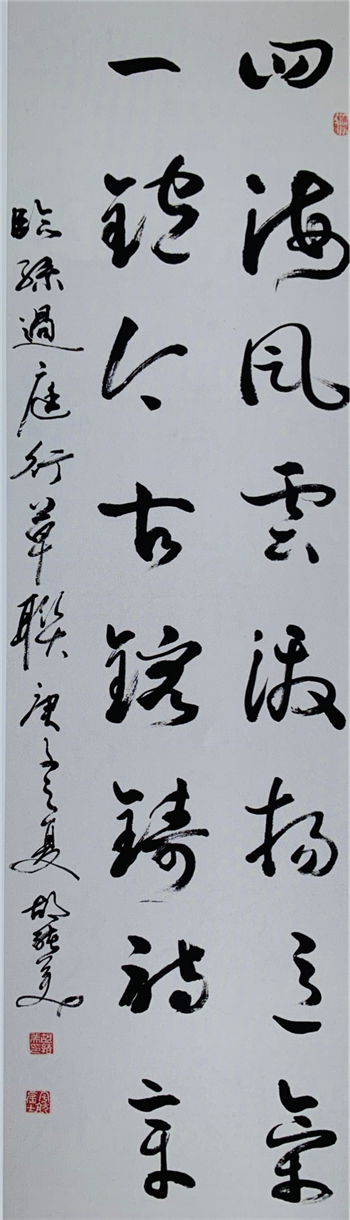 四海風雲激揚意氣
一鑪今古鎔鑄詩章
臨孫過庭行草聯庚子之夏胡